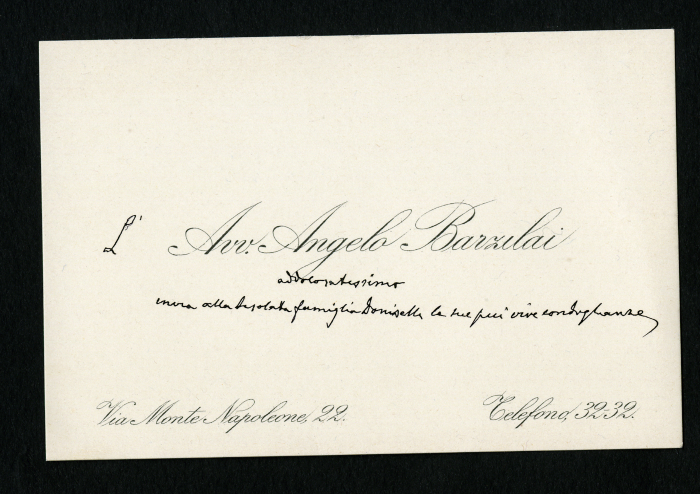 L' Avv. Angelo Barzilai
addoloratissimo
invia alla desolata famiglia Doniselli le sue più vive condoglianze
Via Monte Napoleone, 22.
Telefono, 32-32.